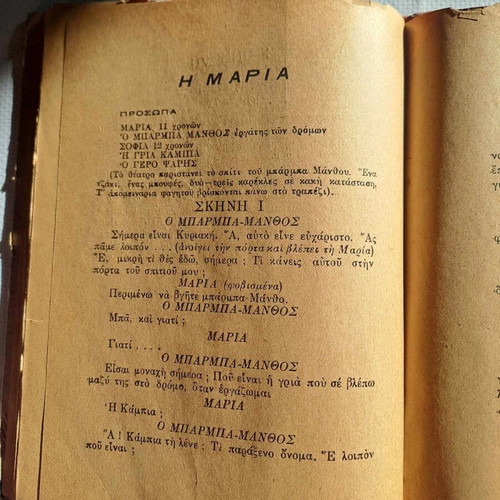 Η ΜΑΡΙΑ
ΠΡΟΣΩΠΑ
ΜΑΡΙΑ 11 χρονῶν
Ὁ ΜΠΑΡΜΠΑ ΜΑΝΘΟΣ ἐργάτης τῶν δρόμων
ΣΟΦΙΑ 12 χρονῶν
Ἡ ΓΡΙΑ ΚΑΜΠΙΑ
Ὁ ΓΕΡΟ ΨΑΡΗΣ
(Τὸ θέατρο παριστάνει τὸ σπίτι τοῦ μπάρμπα Μάνθου. Ἕνα
τζάκι, ἕνας μπουφές, δυὸ-τρεῖς καρέκλες σὲ κακὴ κατάσταση,
Τ' ἀπομεινάρια φαγητοῦ βρίσκονται πάνω στὸ τραπέζι).
ΣΚΗΝΗ Ι
Ο ΜΠΑΡΜΠΑ-ΜΑΝΘΟΣ
Σήμερα εἶναι Κυριακή. Ἄ, αὐτὸ εἶνε εὐχάριστο. Ἄς
πᾶμε λοιπόν... (ἀνοίγει τὴν πόρτα καὶ βλέπει τὴ Μαρία)
Ἔ, μικρὴ τί θὲς ἐδῶ, σήμερα ; Τί κάνεις αὐτοῦ στὴν
πόρτα τοῦ σπιτιοῦ μου ;
ΜΑΡΙΑ (φοβισμένα)
Περιμένω νὰ βγῆτε μπάρμπα-Μάνθο.
Ο ΜΠΑΡΜΠΑ-ΜΑΝΘΟΣ
Μπᾶ, καὶ γιατί ;
ΜΑΡΙΑ
Γιατί . . . .
Ο ΜΠΑΡΜΠΑ-ΜΑΝΘΟΣ
Εἶσαι μοναχὴ σήμερα ; Ποῦ εἶναι ἡ γριὰ ποὺ σὲ βλέπω
μαζύ της στὸ δρόμο, ὅταν ἐργάζωμαι
ΜΑΡΙΑ
Ἡ Κάμπια ;
Ο ΜΠΑΡΜΠΑ-ΜΑΝΘΟΣ
Ἄ ! Κάμπια τὴ λένε ; Τί παράξενο ὄνομα. Ἔ λοιπὸν
ποῦ εἶναι ;